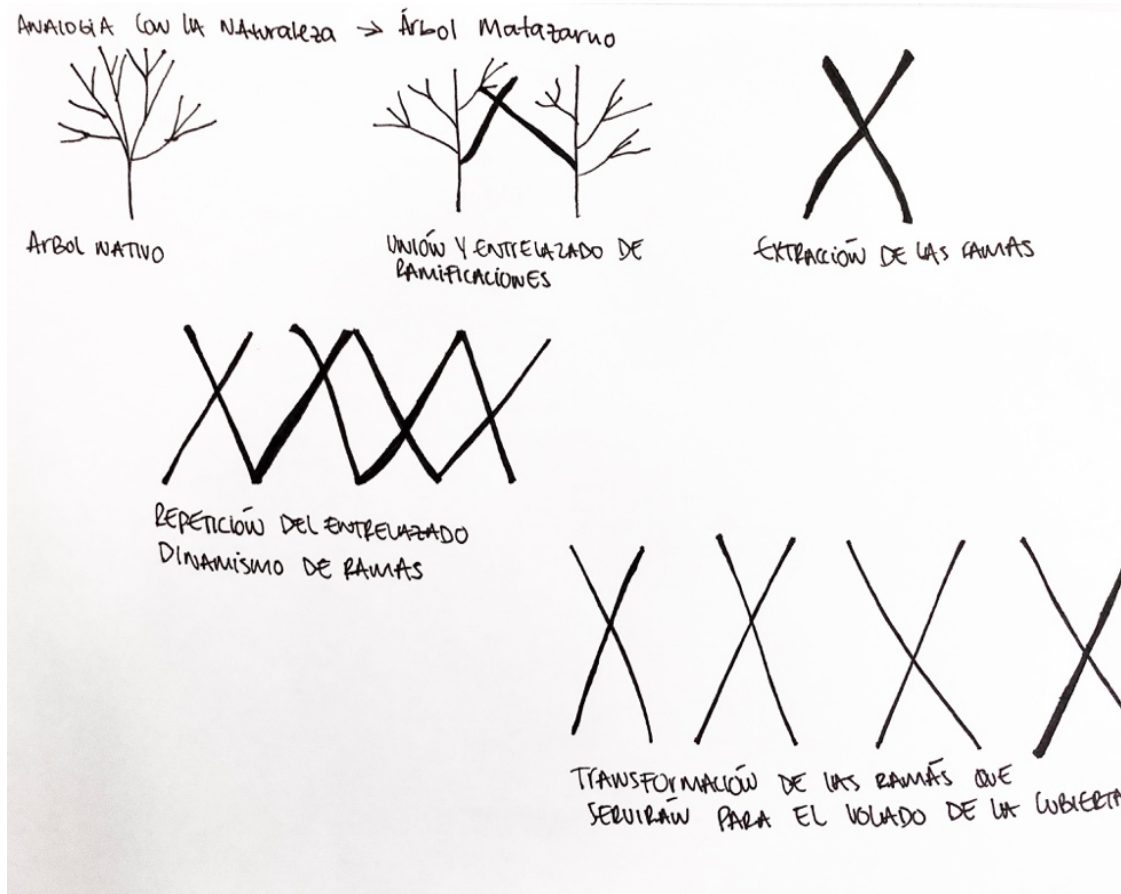 ANALOGIA CON LA NATURALEZA → Árbol Matazarno
ARBOL NATIVO
UNIÓN Y ENTRELAZADO DE
RAMIFICACIONES
EXTRACCIÓN DE LAS RAMAS
REPETICIÓN DEL ENTRELAZADO
DINAMISMO DE RAMAS
TRANSFORMACIÓN DE LAS RAMAS QUE
SERVIRÁN PARA EL VOLADO DE LA CUBIERTA